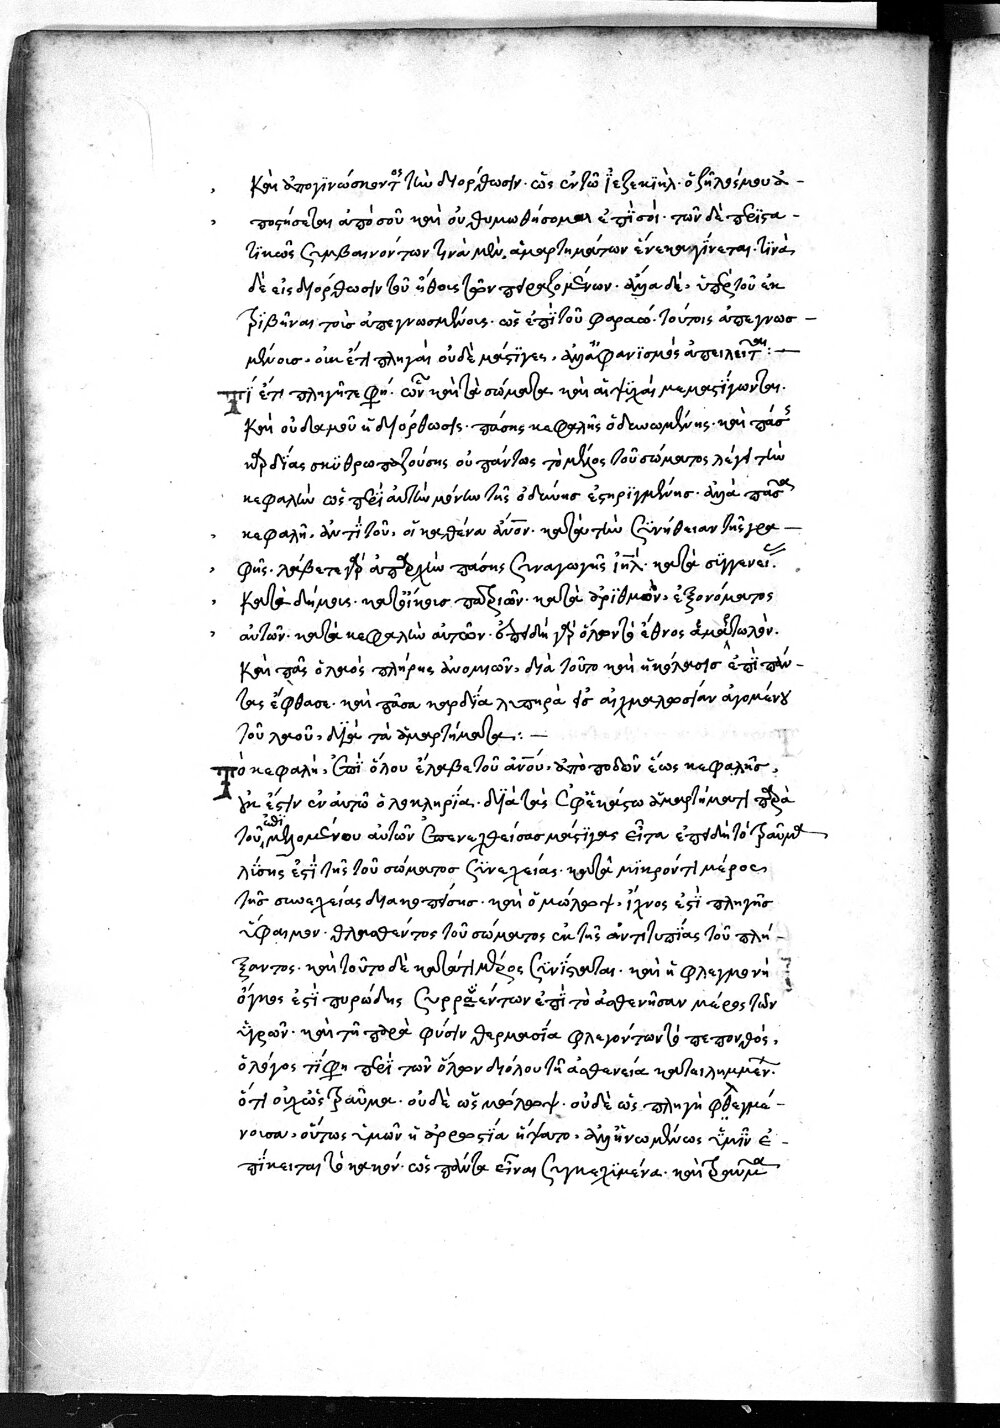 καὶ ἀπογινώσκοντος τὴν διόρθωσιν· ὡς ἐν τῷ ἰεζεκιήλ· ὁ ζῆλός μου ἀ-
ποστήσεται ἀπὸ σοῦ καὶ οὐ θυμωθήσομαι ἐπὶ σοί· τῶν δὲ περιστα-
τικῶς συμβαινόντων τινὰ μὲν, ἁμαρτημάτων ἕνεκα γίνεται· τινὰ
δὲ εἰς διόρθωσιν τοῦ ἤθους τῶν πειραζομένων· ἄλλα δὲ, ὑπὲρ τοῦ ἐκ
τριβῆναι τοὺς ἀπεγνωσμένους· ὡς ἐπὶ τοῦ φαραώ· τούτοις ἀπεγνωσ-
μένοις, οὐκέτι πληγαὶ οὐδὲ μάστιγες, ἀλλ' ἀφανισμὸς ἀπειλεῖται:-
Τί ἔτι πληγῆτε φησί· καὶ τὰ σώματα καὶ αἱ ψυχαὶ μεμαστίγωνται·
καὶ οὐδαμοῦ ἡ διόρθωσις· πάσης κεφαλῆς ὀδυνωμένης· καὶ πάσης
καρδίας σκυθρωπαζούσης οὐ πάντως τὸ μέλος τοῦ σώματος λέγει τὴν
κεφαλὴν ὡς περὶ αὐτὴν μόνην τῆς ὀδύνης ἐστηριγμένης· ἀλλὰ πᾶσα
κεφαλὴ, ἀντὶ τοῦ, οἱ καθένα ἄνθρωπον· κατὰ τὴν συνήθειαν τῆς γρα-
φῆς· λάβετε γὰρ ἀπαρχὴν πάσης συναγωγῆς ἰηλ· κατὰ συγγενεί.
κατὰ δήμους· κατ' οἴκους πατριῶν· κατὰ ἀριθμὸν, ἐξ ὀνόματος
αὐτῶν· κατὰ κεφαλὴν αὐτῶν· ἐπειδὴ γὰρ ὅλον τὸ ἔθνος ἁμαρτωλὸν·
καὶ πᾶς ὁ λαὸς πλήρης ἀνομιῶν, διὰ τοῦτο καὶ ἡ κόλασις ἐπὶ πάν-
τας ἔφθασε· καὶ πᾶσα καρδία λυπηρὰ εἰς αἰχμαλωσίαν ἀγομένου
τοῦ λαοῦ, διὰ τὰ ἁμαρτήματα:-
Τὸ κεφαλὴ, ἐπὶ ὅλου ἔλαβε τοῦ ἀνου, ἀπὸ ποδῶν ἕως κεφαλῆς,
οὐκ ἔστιν ἐν αὐτῷ ὁλοκληρία· διὰ τὰς ἐφ' ἑκάστῳ ἁμαρτήματι παρὰ
τοῦ ἐπιμελομένου αὐτῶν ἐπενεχθείσας μάστιγας εἶτα ἐπειδὴ τὸ τραῦμα
λύσης ἐστὶ τῆς τοῦ σώματος συνεχείας· κατὰ μικρόν τι μέρος,
τῆς συνεχείας διακοπείσης· καὶ ὁ μώλωψ, ἴχνος ἐστὶ πληγῆς
ὕφαιμον· θλασθέντος τοῦ σώματος ἐκ τῆς ἀντιτυπίας τοῦ πλή-
ξαντος· καὶ τοῦτο δὲ κατά τι μέρος συνίσταται· καὶ ἡ φλεγμονὴ
ὄγκος ἐστὶ πυρώδης συρρεόντων ἐπὶ τὸ ἀσθενῆσαν μέρος τῶν
ὑγρῶν· καὶ τῇ παρὰ φύσιν θερμασίᾳ φλεγόντων τὸ πεπονθός,
ὁ λόγος τί φησι περὶ τῶν ὅλον διόλου τῇ ἀσθενείᾳ κατειλημμένων·
ὅτι οὐχ ὡς τραῦμα· οὐδὲ ὡς μώλωψ· οὐδὲ ὡς πληγὴ φλεγμαί-
νουσα, οὕτως ὑμῶν ἡ ἀρρωστία ἥψατο, ἀλλ' ἡνωμένως ὑμῖν ἐ-
πίκειται τὸ κακόν· ὡς πάντα εἶναι συγκεχυμένα· καὶ τραῦμα